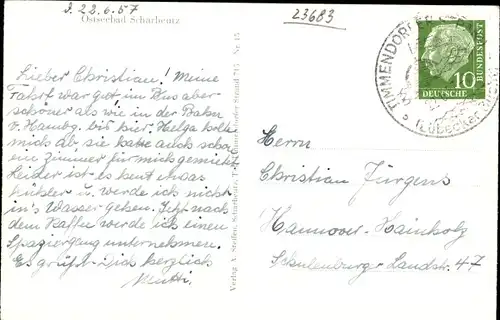 d. 22.6.57
Ostseebad Scharbeutz
23683
Lieber Christian! Meine
Fahrt war gut im Bus aber
schöner als wie in der Bahn
v. Hambg. bis hier. Helga holte
mich ab, sie hatte auch schon
ein Zimmer für mich gemietet.
Leider ist es heut etwas
kühler u. werde ich nicht
in's Wasser gehen. Jetzt nach
dem Kaffee werde ich einen
Spaziergang unternehmen.
Es grüßt Dich herzlich
Mutti.
Verlag A. Steffen, Scharbeutz, Strand 715 Nr. 15
TIMMENDORFER
(LÜBECKER
10
DEUTSCHE
BUNDESPOST
Herrn
Christian Jürgens
Hannover-Hainholz
Schulenburger Landstr. 47